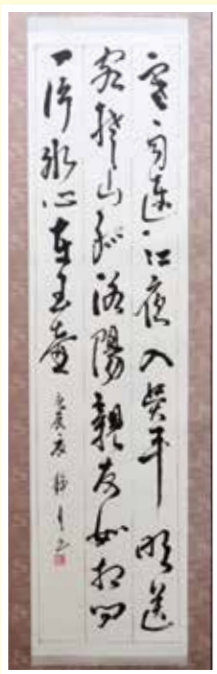 寒雨連江夜入吳平明送
客楚山孤洛陽親友如相问
一片冰心在玉壺